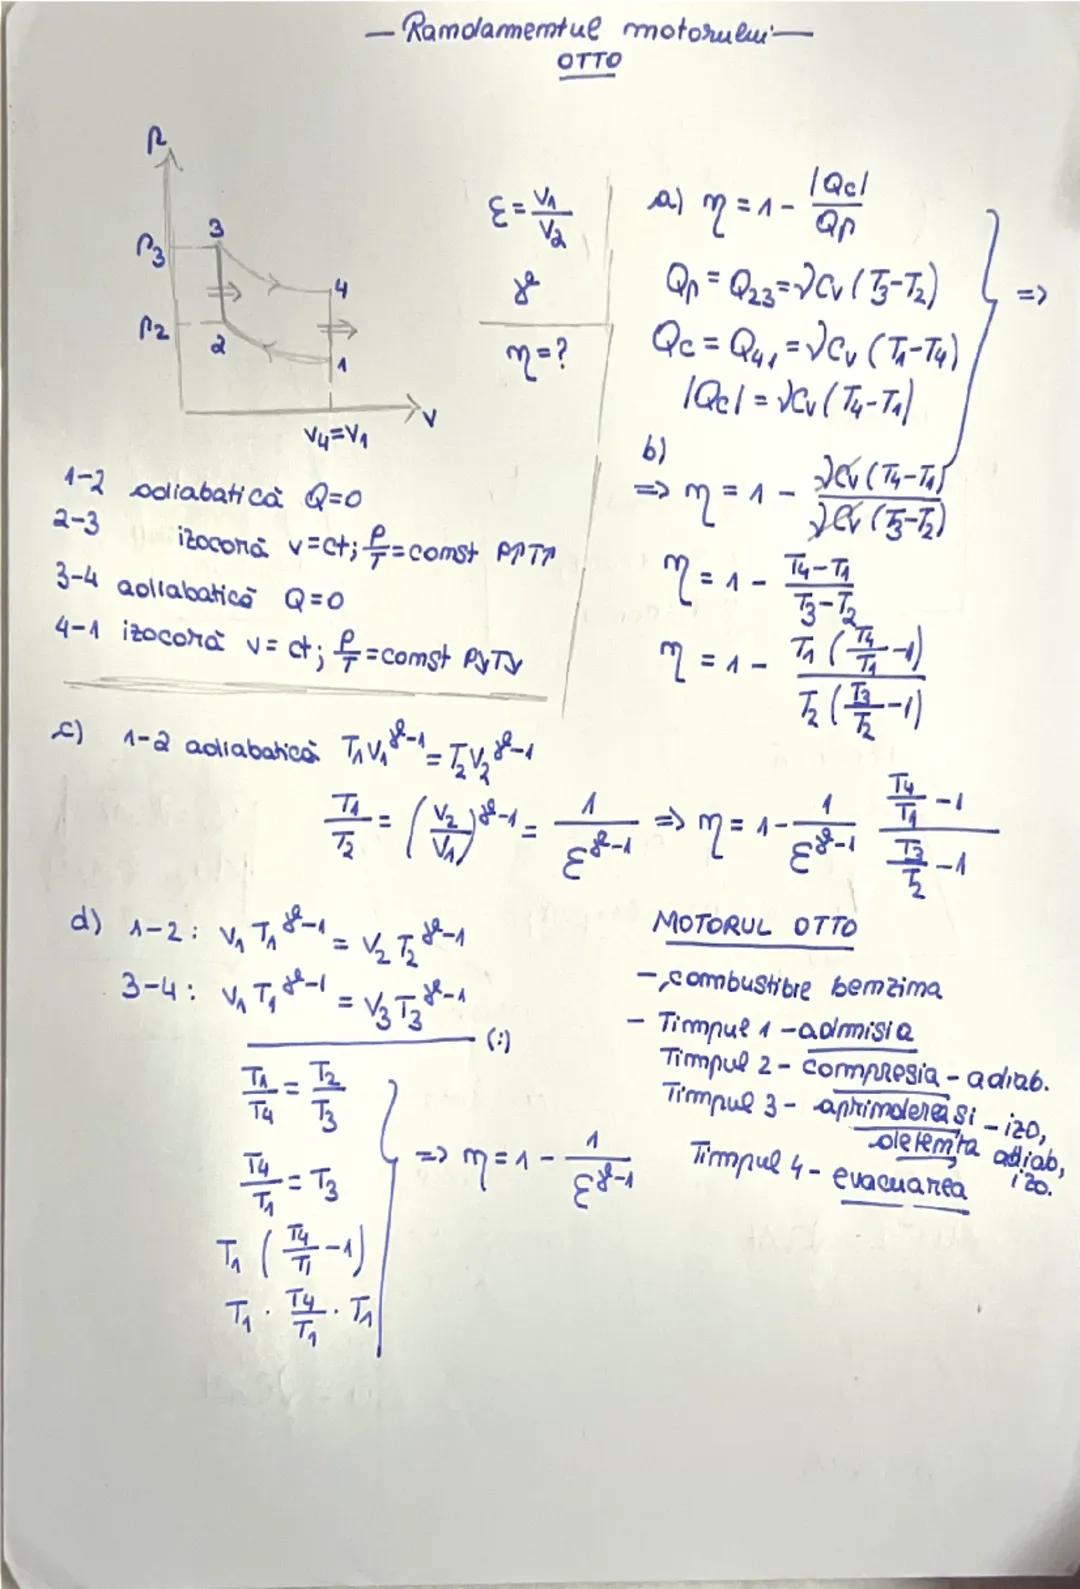 — Randamentul motorului —
OTTO
p
p3
3
4
p2
2
1
V
V4=V1
ε = V1/V2
γ
η=?
a) η = 1 - |Qc|/Qp
Qp = Q23 = νCv (T3-T2)
=>
Qc = Q41 = νCv (T1-T4)
|Qc| = νCv (T4-T1)
b)
=> η = 1 - νCv (T4-T1)/νCv (T3-T2)
η = 1 - T4-T1/T3-T2
η = 1 - T1 (T4/T1 -1)/T2 (T3/T2 -1)
1-2 adiabatică Q=0
2-3 izocoră v=ct; P/T = const P↑T↑
3-4 adiabatică Q=0
4-1 izocoră v= ct; P/T =const P↘T↘
c) 1-2 adiabatică T1V1^γ-1 = T2V2^γ-1
T1/T2 = (V2/V1)^γ-1 = 1/ε^γ-1 => η = 1 - 1/ε^γ-1 T4/T1 -1/T3/T2 -1
d) 1-2: V1 T1^γ-1 = V2 T2^γ-1
3-4: V1 T1^γ-1 = V3 T3^γ-1
(:)
T1/T4 = T2/T3
T4/T1 = T3
=> η = 1 - 1/ε^γ-1
T1 (T4/T1 -1)
T1 · T4/T1 · T1
MOTORUL OTTO
- combustibie benzina
- Timpul 1 - admisia
Timpul 2 - compresia - adiab.
Timpul 3 - aprinderea si - izo,
detenta adiab,
Timpul 4 - evacuarea izo.